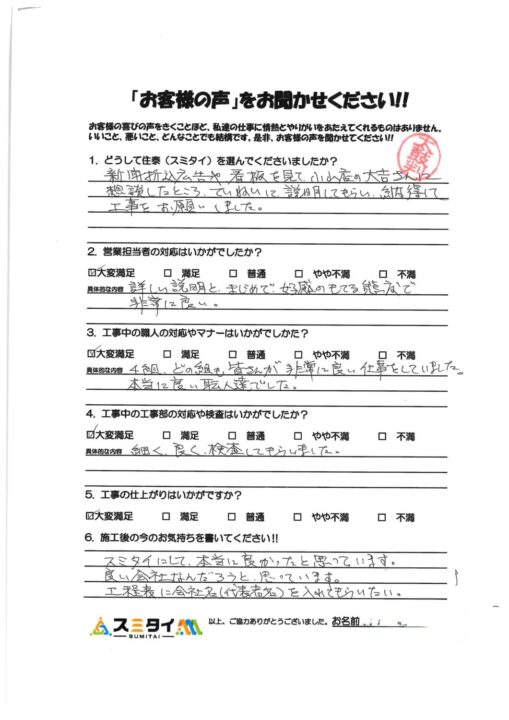 「お客様の声」をお聞かせください!!
お客様の喜びの声をきくことほど、私達の仕事に情熱とやりがいをあたえてくれるものはありません。
いいこと、悪いこと、どんなことでも結構です。是非、お客様の声を聞かせてください!!
太鼓判
1. どうして住泰(スミタイ)を選んでくださいましたか?
新聞折込広告や 看板を見て 小山店の大吉さんに
想談したところ、ていねいに 説明してもらい、納得して
工事をお願いしました。
2. 営業担当者の対応はいかがでしたか?
☑大変満足 □ 満足 □ 普通 □ やや不満 □ 不満
具体的な内容 詳しい説明と、まじめで、好感のもてる態度で
非常に良い。
3. 工事中の職人の対応やマナーはいかがでしかた?
☑大変満足 □ 満足 □ 普通 □ やや不満 □ 不満
具体的な内容 4組、どの組も皆さんが 非常に良い仕事をしていました。
本当に良い職人達でした。
4. 工事中の工事部の対応や検査はいかがでしたか?
☑大変満足 □ 満足 □ 普通 □ やや不満 □ 不満
具体的な内容 細く、良く、検査してもらいました。
5. 工事の仕上がりはいかがですか?
☑大変満足 □ 満足 □ 普通 □ やや不満 □ 不満
6. 施工後の今のお気持ちを書いてください!!
スミタイにして、本当に良かったと思っています。
良い会社なんだろうと、思っています。
工程表に会社名(代表者名)を入れてもらいたい。
スミタイ
SUMITAI
以上、ご協力ありがとうございました。お名前